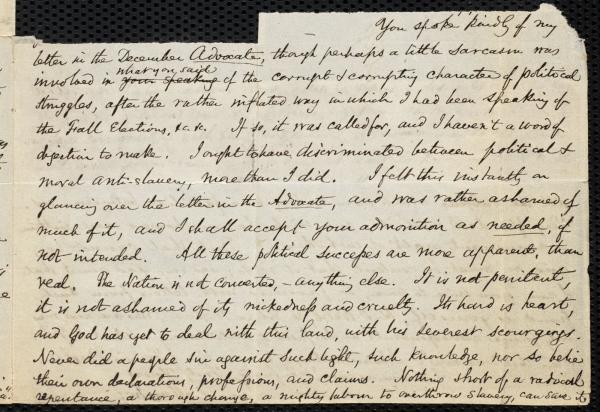 You spoke kindly of my
letter in the December Advocate, though perhaps a little sarcasm was
what you said
involved in your speaking of the corrupt & corrupting character of political
struggles, after the rather inflated way in which I had been speaking of
the Fall Elections, &c. &c. If so, it was called for, and I haven't a word of
objection to make. I ought to have discriminated between political &
moral anti-slavery, more than I did. I felt this instantly on
glancing over the letter in the Advocate, and was rather ashamed of
much of it, and I shall accept your admonition as needed, if
not intended. All these political successes are more apparent, than
real. The Nation is not converted, – anything else. It is not penitent,
it is not ashamed of its wickedness and cruelty. Its hard is heart,
and God has yet to deal with this land, with his severest scourgings.
Never did a people sin against such light, such knowledge, nor so belie
their own declarations, professions, and claims. Nothing short of a radical
repentance, a thorough change, a mighty labour to overthrow slavery, can save it